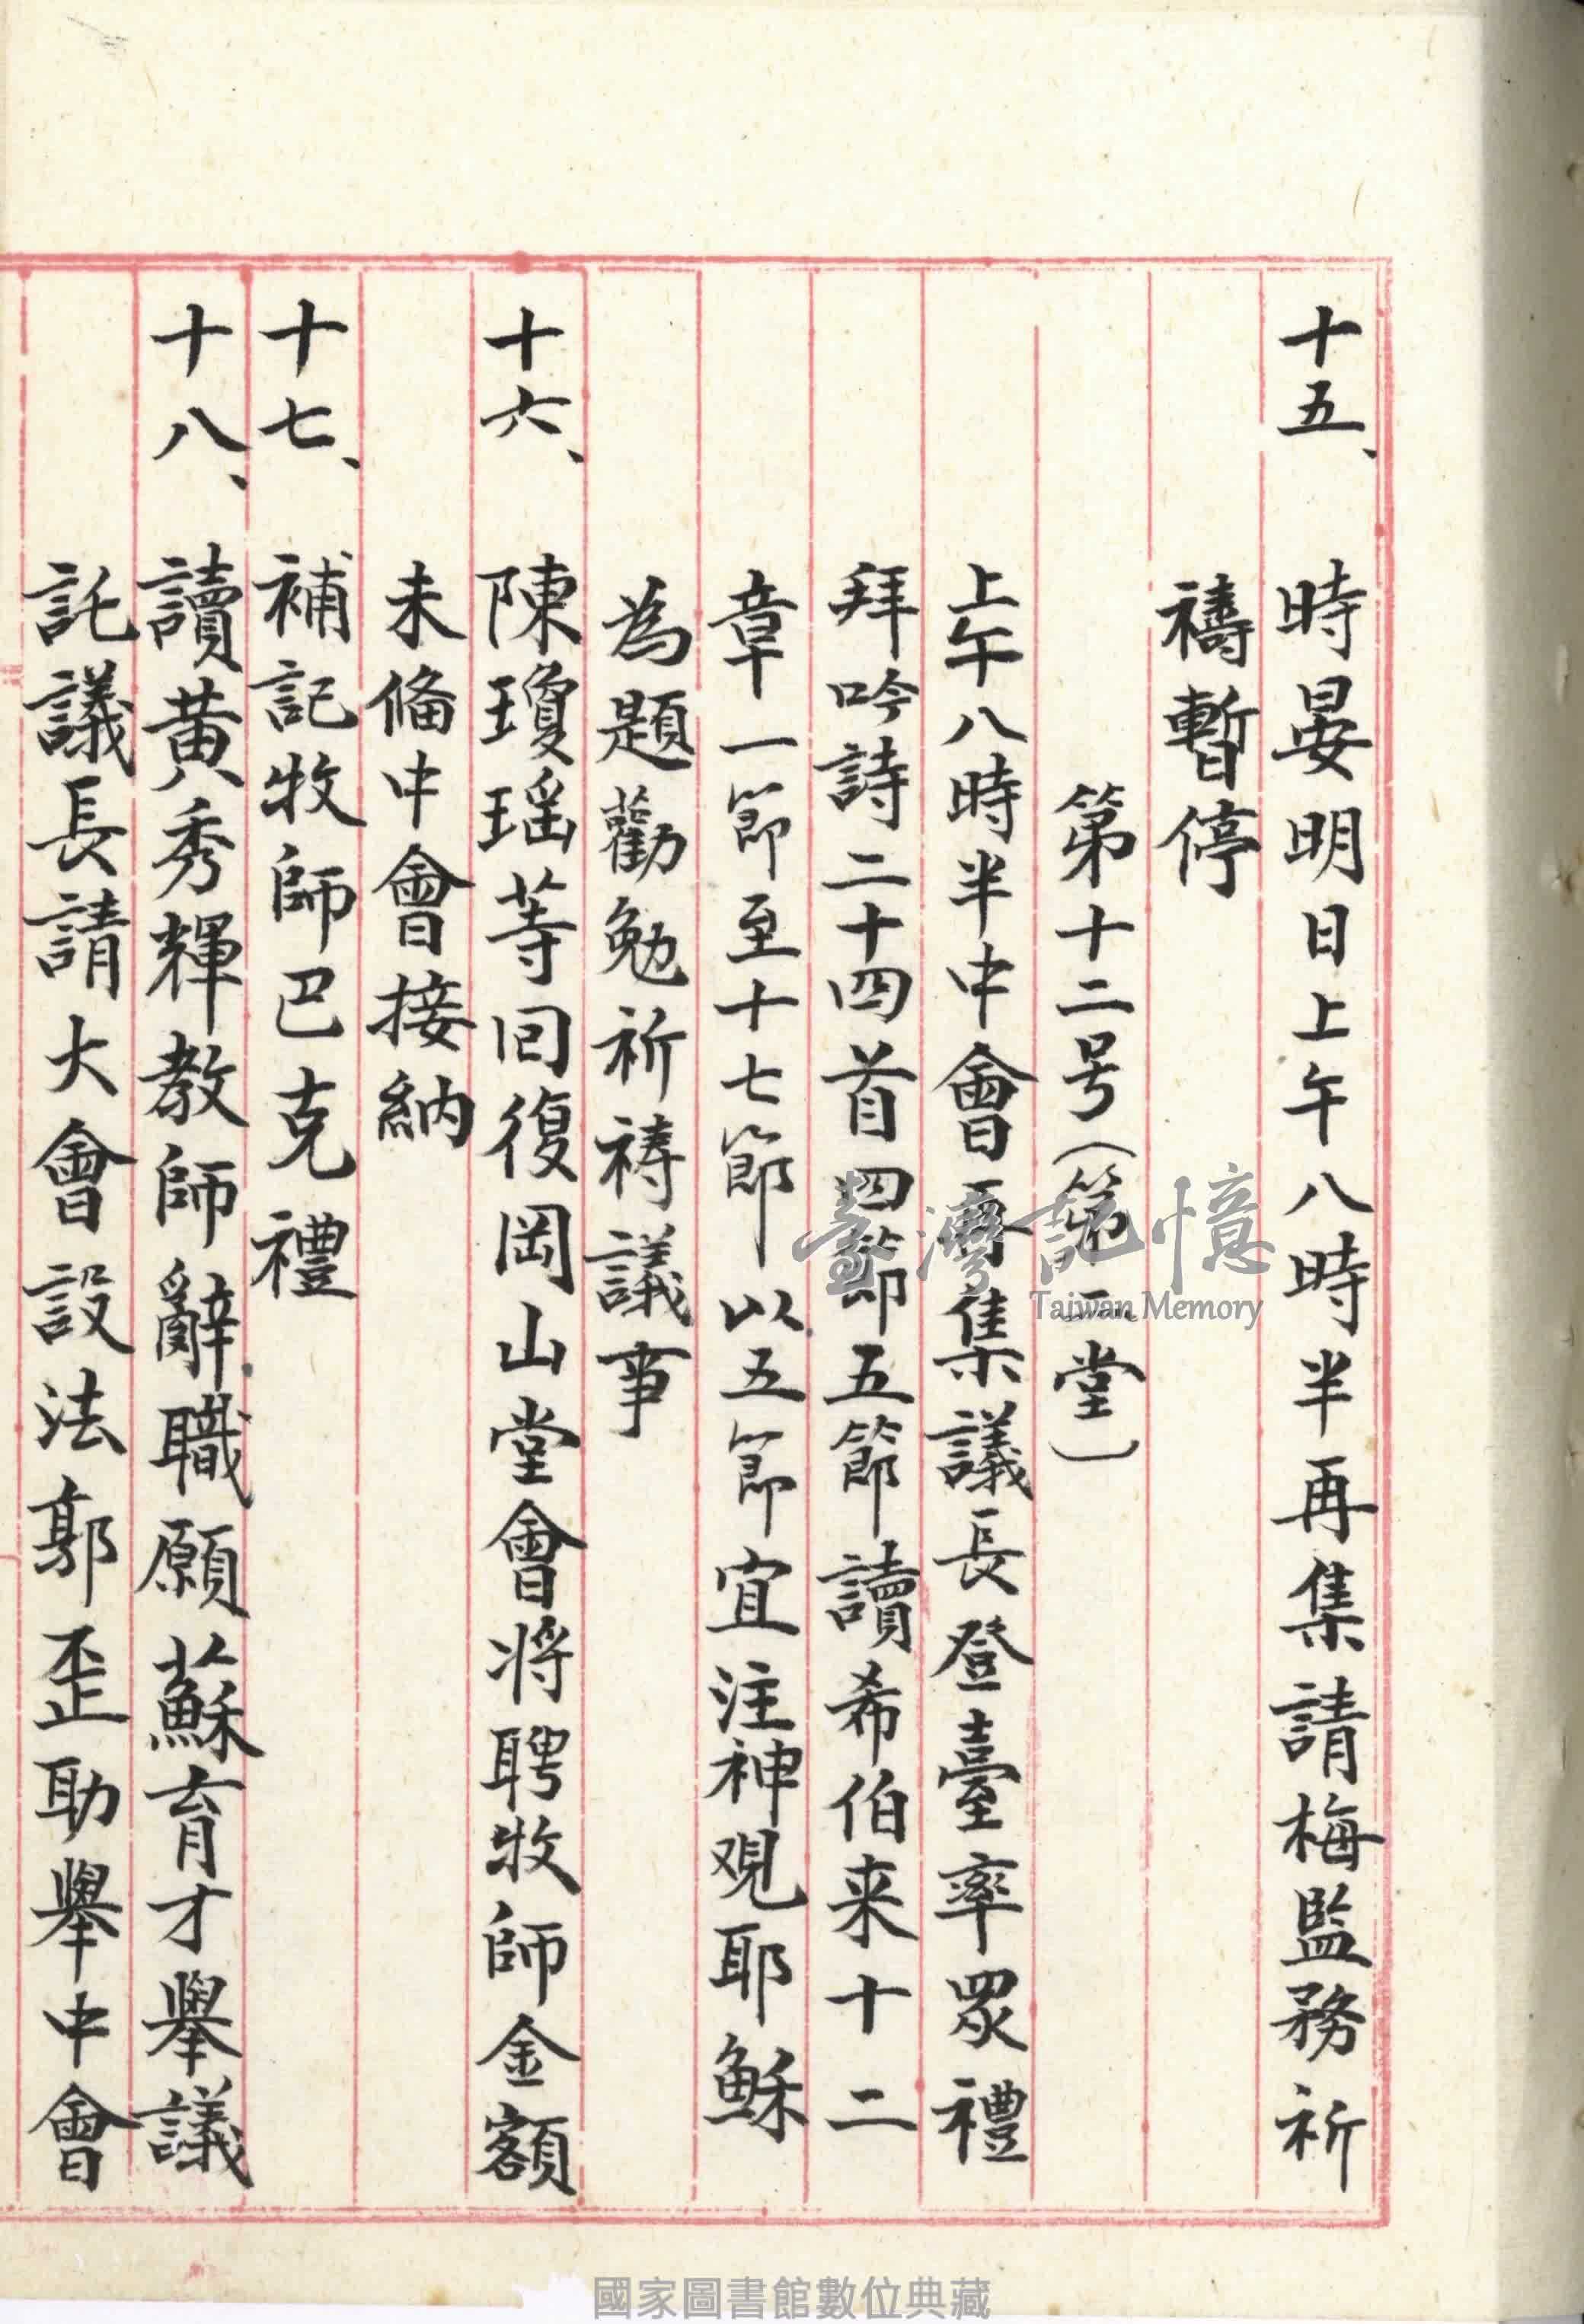 十五、時晏明日上午八時半再集請梅監務祈
禱暫停
第十二号(第二堂)
上午八時半中會再集議長登臺率眾禮
拜吟詩二十四首四節五節讀希伯来十二
章一節至十七節以五節宜注神观耶穌
為題勸勉祈祷議事
十六、陳瓊瑶等囘復岡山堂會将聘牧師金額
未俻中會接納
十七、補記牧師巴克禮
十八、讀黃秀輝教師辭職願蘇育才舉議
託議長請大會設法郭歪助舉中會
臺灣記憶
Taiwan Memory
國家圖書館數位典藏